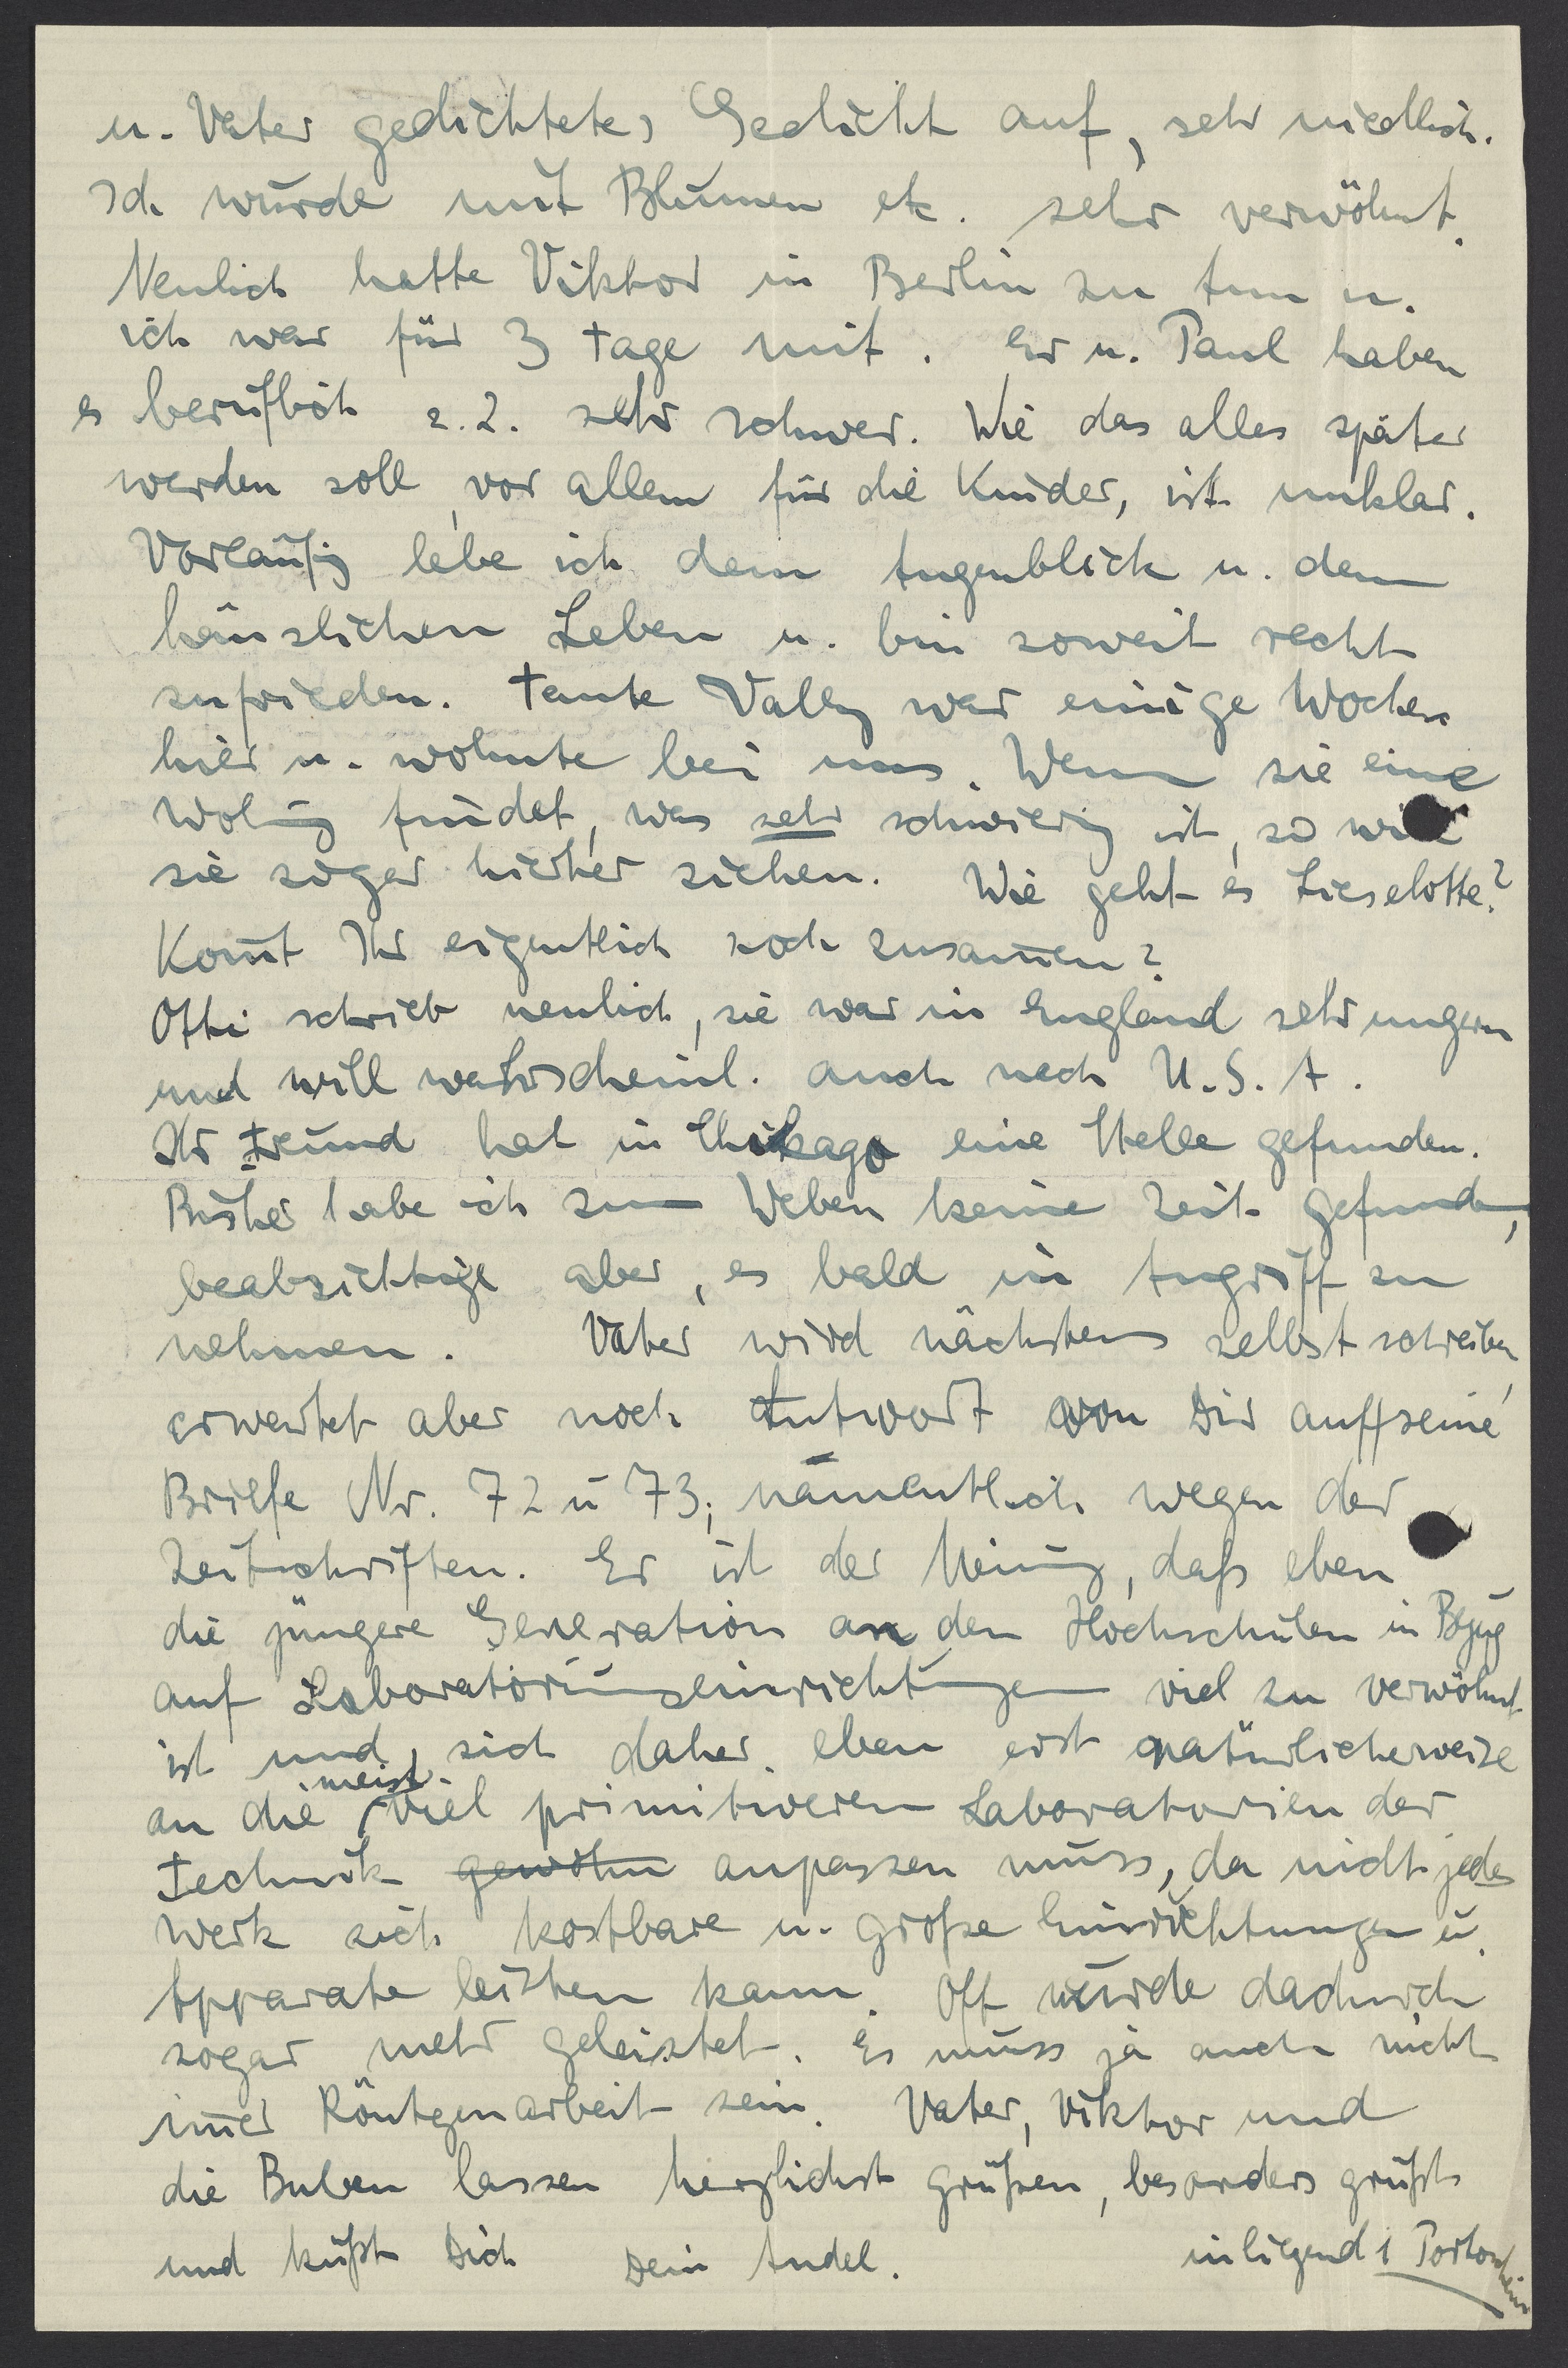 u. Vater gedichtetes Gedicht auf, sehr niedlich.
Ich wurde mit Blumen etc. sehr verwöhnt.
Neulich hatte Viktor in Berlin zu tun u.
ich war für 3 Tage mit. Er u. Paul haben
es beruflich z.Z. sehr schwer. Wie das alles später
werden soll, vor allem für die Kinder, ist unklar.
Vorläufig lebe ich dem Augenblick u. dem
häuslichen Leben u. bin soweit recht
zufrieden. Tante Vally war einige Wochen
hier u. wohnte bei uns. Wenn sie eine
Wohng findet, was sehr schwierig ist, so will
sie sogar hierher ziehen. Wie geht es Lieselotte?
Kom̅t Ihr eigentlich noch zusam̅en?
Otti schrieb neulich, sie war in England sehr ungern
und will wahrscheinl. auch nach U.S.A.
Ihr Freund hat in Chikago eine Stelle gefunden.
Bisher habe ich zum Weben keine Zeit gefunden,
beabsichtige aber, es bald in Angriff zu
nehmen. Vater wird nächstens selbst schreiben,
erwartet aber noch Antwort von Dir auf seine
Briefe Nr. 72 u 73, namentlich wegen der
Zeitschriften. Er ist der Meinung, daß eben
die jüngere Generation an den Hochschulen in Bezug
auf Laboratoriumseinrichtungen viel zu verwöhnt
ist und sich daher eben erst natürlicherweise
an die meist viel primitiveren Laboratorien der
Technik gewöhn anpassen muss, da nicht jedes
Werk sich kostbare u. große Einrichtungen u.
Apparate leisten kann. Oft wurde dadurch
sogar mehr geleistet. Es muss ja auch nicht
im̅er Röntgenarbeit sein. Vater, Viktor und
die Buben lassen herzlichst grüßen, besonders grüßt
und küßt Dich Dein Andel. inliegend 1 Portoschein